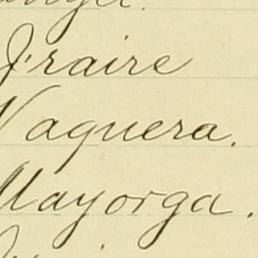 Fraire
Vaquera.
Mayorga.